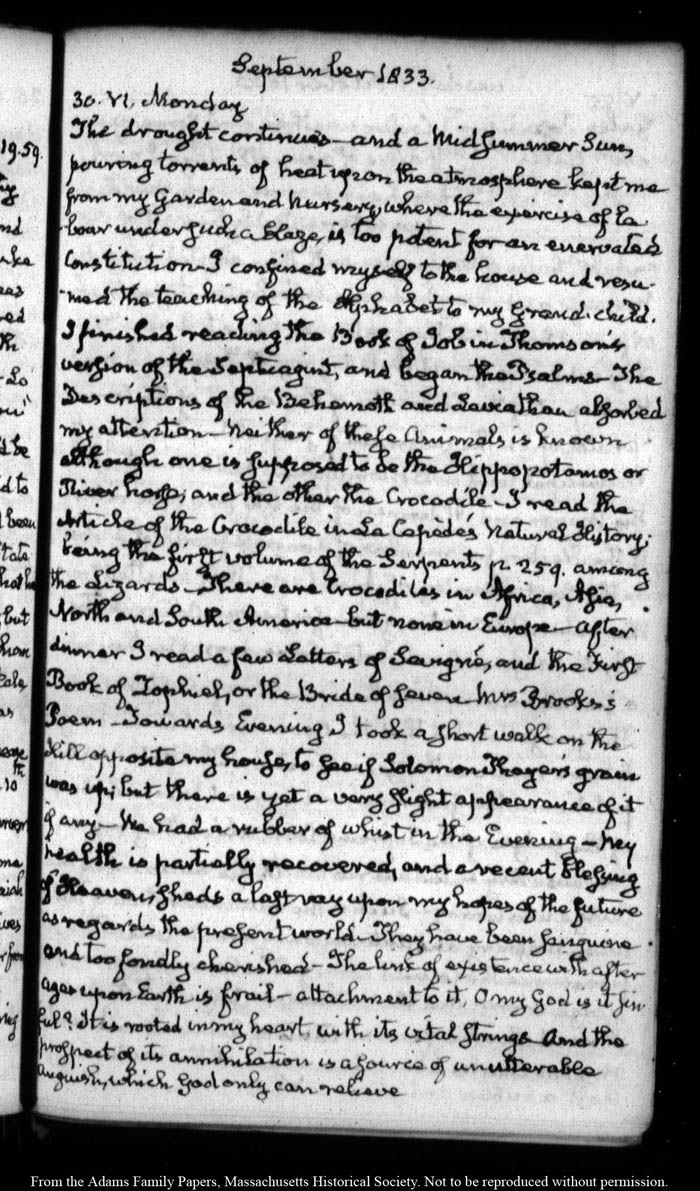 September 1833.
30. VI. Monday
The drought continues—and a Midsummer Sun,
pouring torrents of heat upon the atmosphere kept me
from my Garden and Nursery, where the exercise of la-
-bour under such a blaze, is too potent for an enervated
Constitution—I confined myself to the house and resu-
-med the teaching of the Alphabet to my Grand-child.
I finished reading the Book of Job in Thomson's
version of the Septuagint, and began the Psalms—The
Descriptions of the Behemoth and Leviathan absorbed
my attention—Neither of these Animals is known
although one is supposed to be the Hippopotamos or
River horse; and the other the Crocodile—I read the
Article of the Crocodile in La Cepède's Natural History;
being the first volume of the Serpents p. 259. among
the Lizards—There are Crocodiles in Africa, Asia,
North and South America—but none in Europe—After
dinner I read a few Letters of Sevigné, and the First
Book of Zophiel, or the Bride of Seven Mrs Brooks's
Poem—Towards Evening I took a short walk on the
Hill opposite my house, to see if Solomon Thayer's grain
was up; but there is yet a very slight appearance of it
if any—We had a rubber of whist in the Evening—My
health is partially recovered, and a recent blessing
of Heaven, sheds a last ray upon my hopes of the future
as regards the present world—They have been sanguine
and too fondly cherished—The link of existence with after
ages upon Earth is frail—attachment to it, O my God is it sin-
ful? It is rooted in my heart with its vital strings and the
prospect of its annihilation is a source of unutterable
anguish, which God only can relieve
19.59.
From the Adams Family Papers, Massachusetts Historical Society. Not to be reproduced without permission.